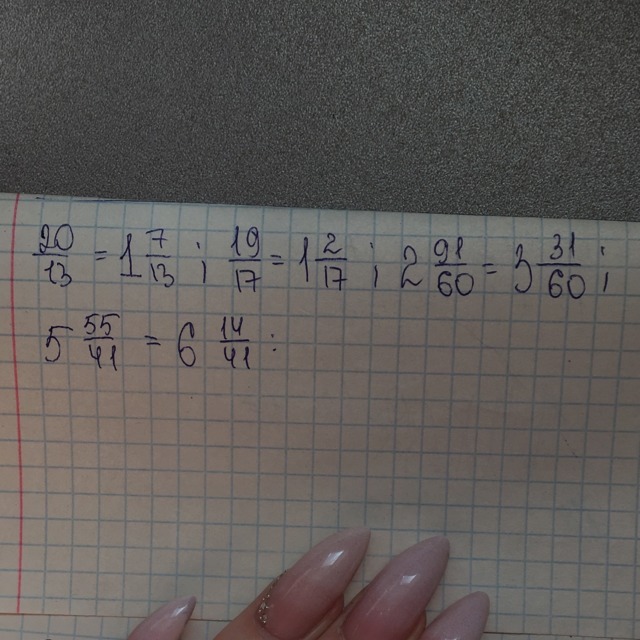 20/13 = 1 7/13 ; 19/17 = 1 2/17 ; 2 91/60 = 3 31/60 ;
5 55/41 = 6 14/41 :